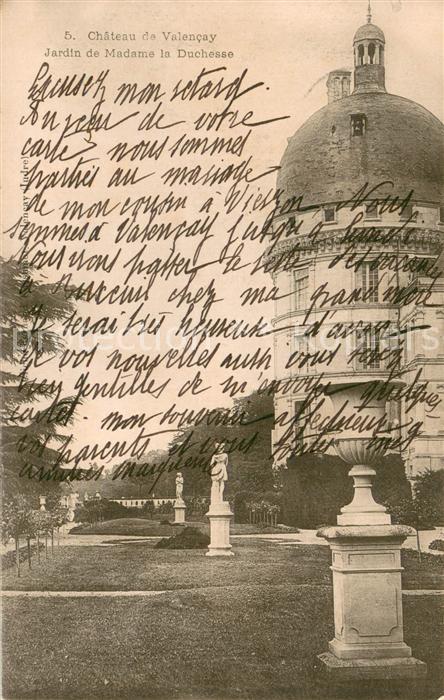 5. Château de Valençay
Jardin de Madame la Duchesse
Excusez mon retard.
Au reçu de votre
carte nous sommes
partis au mariage
de mon cousin à Vierzon. Nous
sommes à Valençay jusqu'à lundi
nous passer le reste des vacances
à chez ma grand mère
je serai très heureuse d'avoir
de vos nouvelles aussi vous serez
bien gentilles de m'envoyer quelques
cartes. mon souvenir affectueux
vos parents et vous toutes mes
amitiés Marguerite